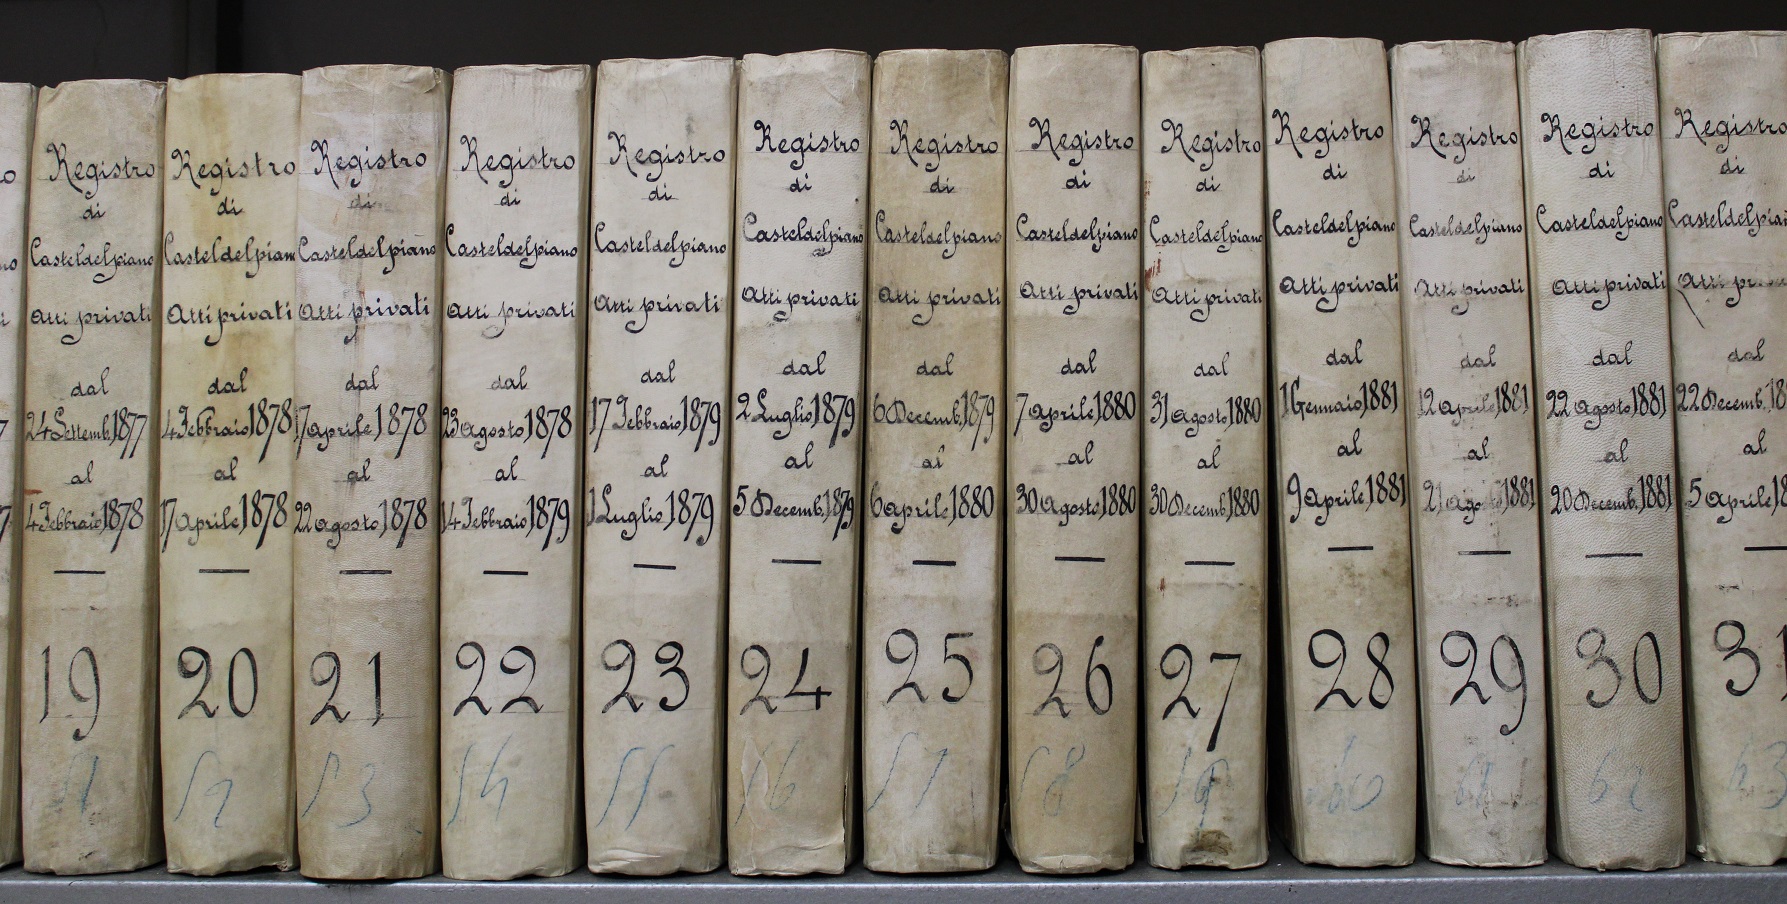 Registro
di
Casteldelpiano
Atti privati
dal
24 Settemb. 1877
al
4 Febbraio 1878
19
51
Registro
di
Casteldelpiano
Atti privati
dal
4 Febbraio 1878
al
17 aprile 1878
20
52
Registro
di
Casteldelpiano
Atti privati
dal
17 aprile 1878
al
22 agosto 1878
21
53
Registro
di
Casteldelpiano
Atti privati
dal
23 agosto 1878
al
14 Febbraio 1879
22
54
Registro
di
Casteldelpiano
Atti privati
dal
17 Febbraio 1879
al
1 Luglio 1879
23
55
Registro
di
Casteldelpiano
Atti privati
dal
2 Luglio 1879
al
5 Decemb. 1879
24
56
Registro
di
Casteldelpiano
Atti privati
dal
6 Decemb. 1879
al
6 aprile 1880
25
57
Registro
di
Casteldelpiano
Atti privati
dal
7 aprile 1880
al
30 agosto 1880
26
58
Registro
di
Casteldelpiano
Atti privati
dal
31 agosto 1880
al
30 Decemb. 1880
27
59
Registro
di
Casteldelpiano
Atti privati
dal
1 Gennaio 1881
al
9 aprile 1881
28
60
Registro
di
Casteldelpiano
Atti privati
dal
12 aprile 1881
al
21 ago 1881
29
61
Registro
di
Casteldelpiano
Atti privati
dal
22 agosto 1881
al
20 Decemb. 1881
30
62
Registro
di
Casteldelpia
Atti
dal
22 Decemb. 18
al
5 aprile 18
31
63